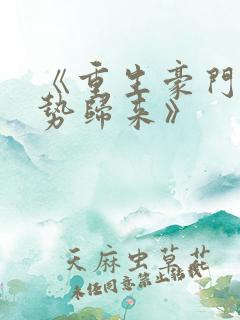 《重生豪门
势归来》
天麻虫草花
未经同意禁止转载